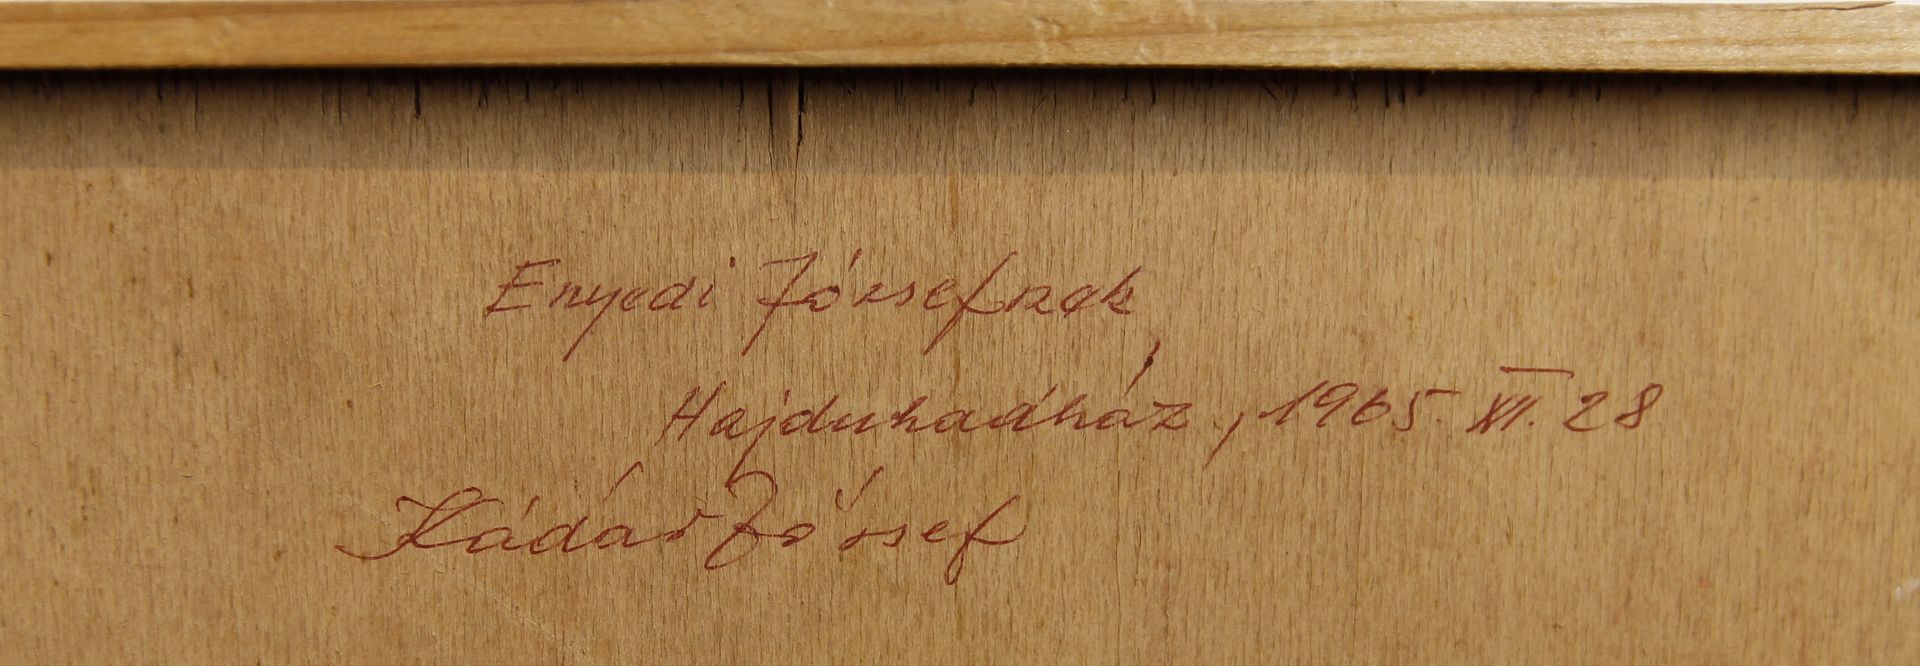 Enyedi Józsefnek
Hajduhadház, 1965. XII. 28
Kádár József